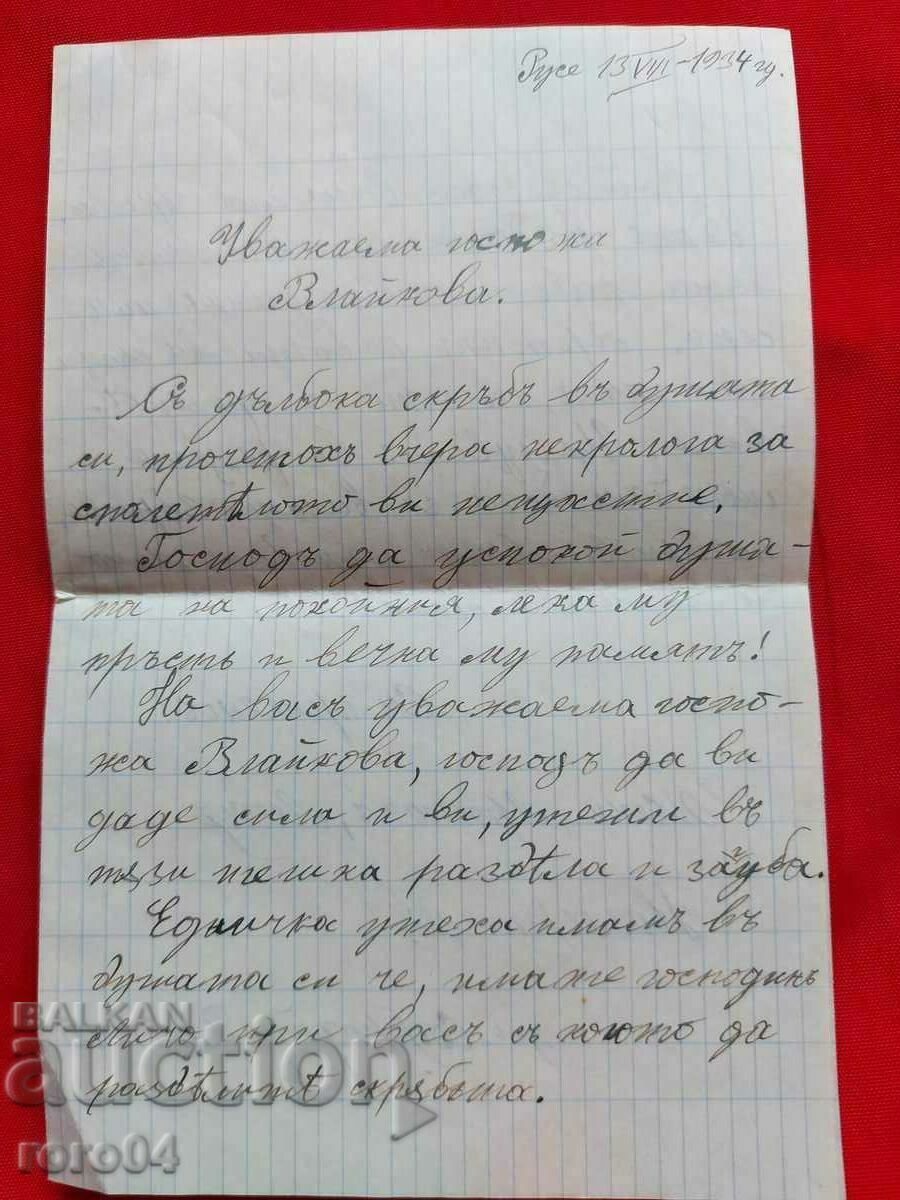 Русе 13 VIII - 1934 гд.
Уважаема госпожа
Влайкова.
Съ дълбока скръбъ въ душата
си, прочетохъ вчера некролога за
сполетѣлото ви нещастие.
Господъ да успокой душа-
та на покойния, лека му
пръсть и вечна му паметь!
На васъ уважаема госпо-
жа Влайкова, господъ да ви
даде сила и ви, утеши въ
тязи тешка раздѣла и загуба.
Едничка утеха имамъ въ
душата си че, имате господинъ
при васъ съ когото да
раздѣлитѣ скрябьта.
BALKAN
auction
roro04